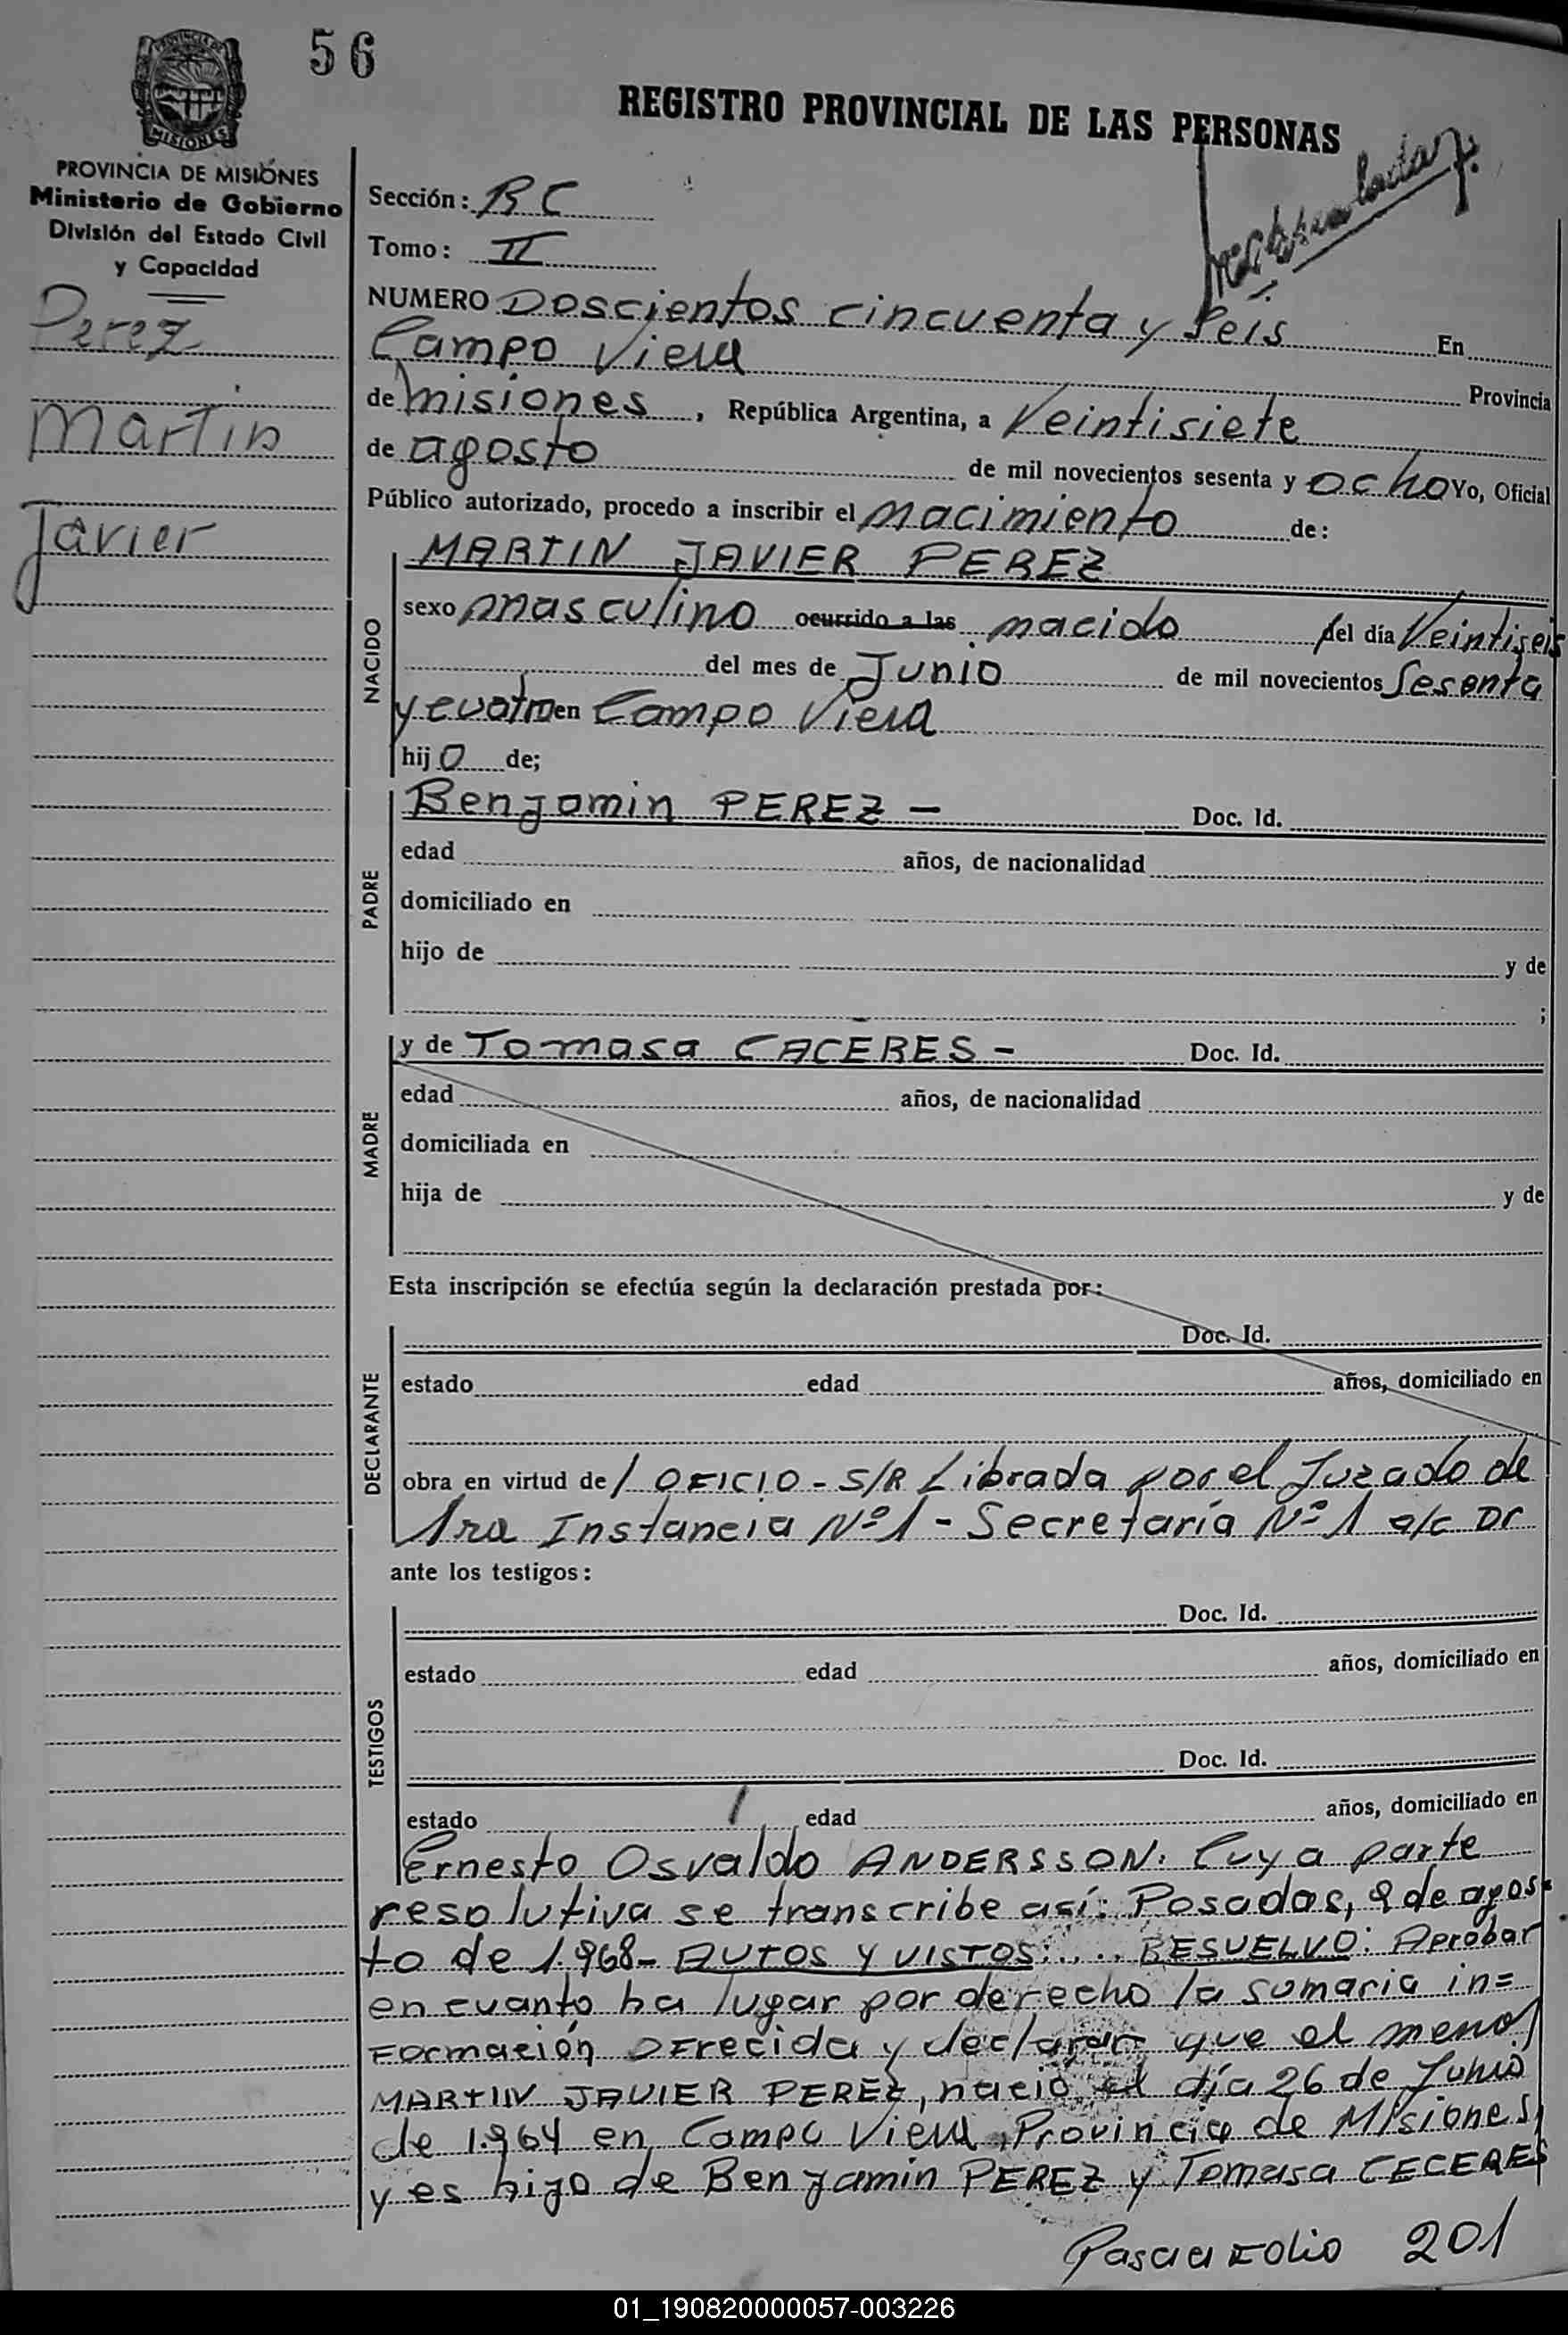 56
PROVINCIA DE MISIONES
REGISTRO PROVINCIAL DE LAS PERSONAS
PROVINCIA DE MISIONES
Ministerio de Gobierno
División del Estado Civil
y Capacidad
Perez
Martin
Javier
Sección: RC
Tomo: II
NUMERO Doscientos cincuenta y Seis En
Campo Viera Provincia
de Misiones, República Argentina, a Veintisiete
de agosto de mil novecientos sesenta y ocho Yo, Oficial
Público autorizado, procedo a inscribir el Nacimiento de:
NACIDO
MARTIN JAVIER PEREZ
sexo masculino ocurrido a las nacido del día Veintiseis
del mes de Junio de mil novecientos Sesenta
y cuatro en Campo Viera
hijo de;
PADRE
Benjamin PEREZ - Doc. Id.
edad años, de nacionalidad
domiciliado en
hijo de y de
;
MADRE
y de Tomasa CACERES - Doc. Id.
edad años, de nacionalidad
domiciliada en
hija de y de
Esta inscripción se efectúa según la declaración prestada por:
DECLARANTE
Doc. Id.
estado edad años, domiciliado en
obra en virtud de / OFICIO - S/R Librada por el Juzado de
1ra Instancia Nº 1 - Secretaría Nº 1 a/c Dr
ante los testigos:
TESTIGOS
Doc. Id.
estado edad años, domiciliado en
Doc. Id.
estado / edad años, domiciliado en
Ernesto Osvaldo ANDERSSON. Cuya parte
resolutiva se transcribe así: Posadas, 9 de agos-
to de 1.968- AUTOS Y VISTOS:.... RESUELVO: Aprobar
en cuanto ha lugar por derecho la sumaria in=
Formación OFrecida y declarar que el menor
MARTIN JAVIER PEREZ, nació el día 26 de Junio
de 1.964 en Campo Viera, Provincia de Misiones,
y es hijo de Benjamin PEREZ y Tomasa CECERES
Pasa a Folio 201
01_190820000057-003226